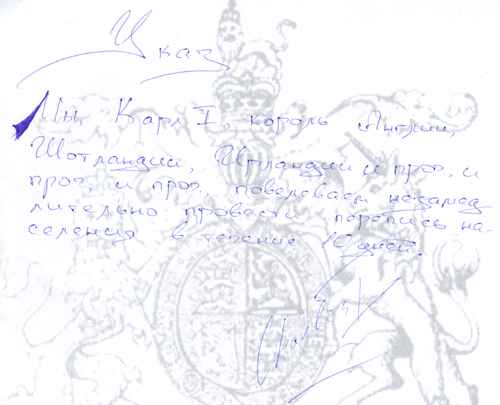 Указ
Мы, Карл I, король Англии,
Шотландии, Ирландии и проч. и
проч. и проч., повелеваем незамед
лительно провести перепись на-
селения в течение 10 дней.